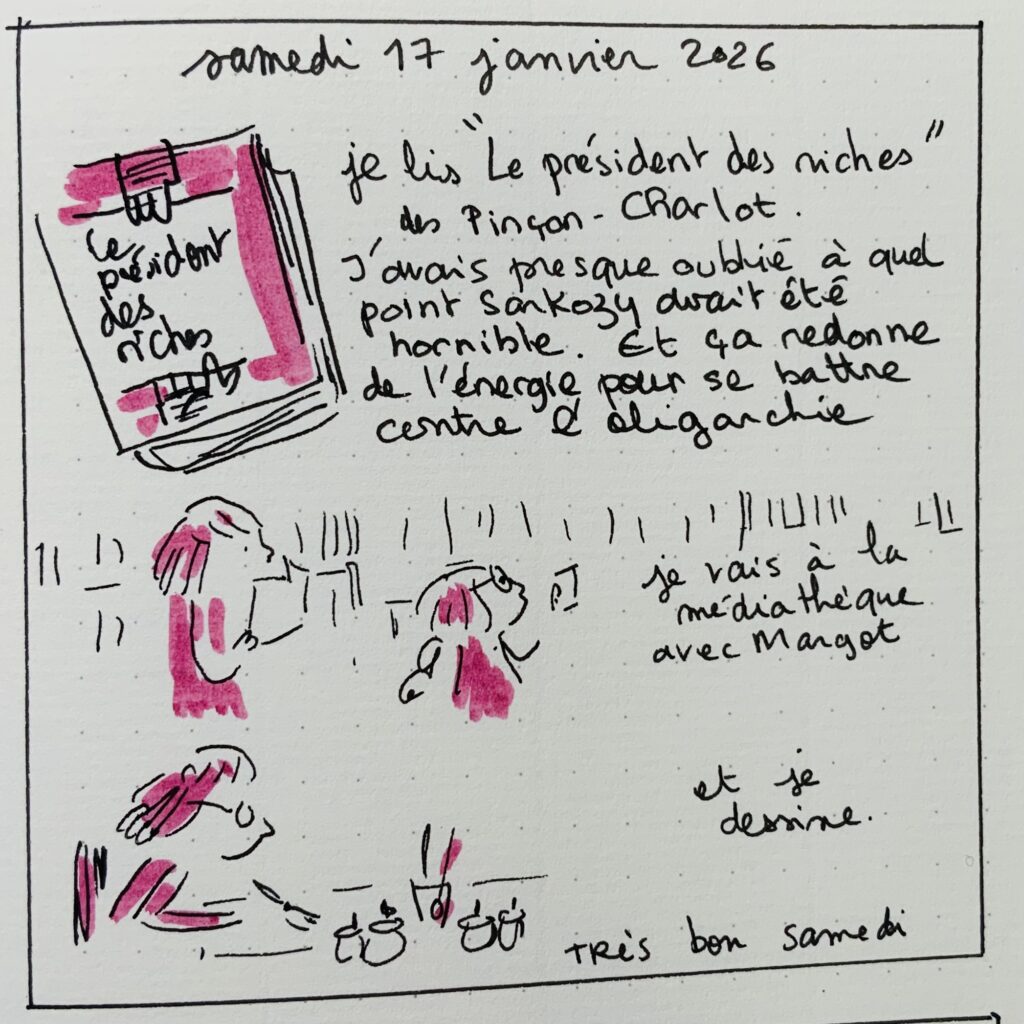 samedi 17 janvier 2026
je lis "Le président des riches"
des Pinçon-Charlot.
J'avais presque oublié à quel
point Sarkozy avait été
horrible. Et ça redonne
de l'énergie pour se battre
contre l'oligarchie
Le
président
des
riches
je vais à la
médiathèque
avec Margot
et je
dessine.
TRès bon samedi